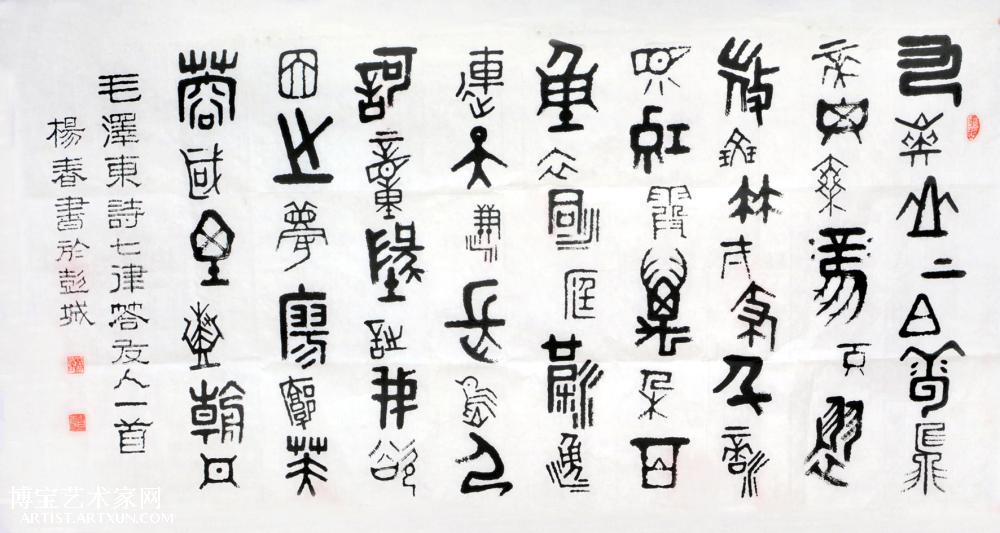 九嶷山上白雲飛
帝子乘風下翠
微斑竹一枝千滴
淚紅霞萬朵百
重衣洞庭波湧
連天雪長島人
歌動地詩我欲
因之夢寥廓芙
蓉國里盡朝暉
毛澤東詩七律答友人一首
楊春書於彭城
博宝艺术家网
ARTIST.ARTXUN.COM